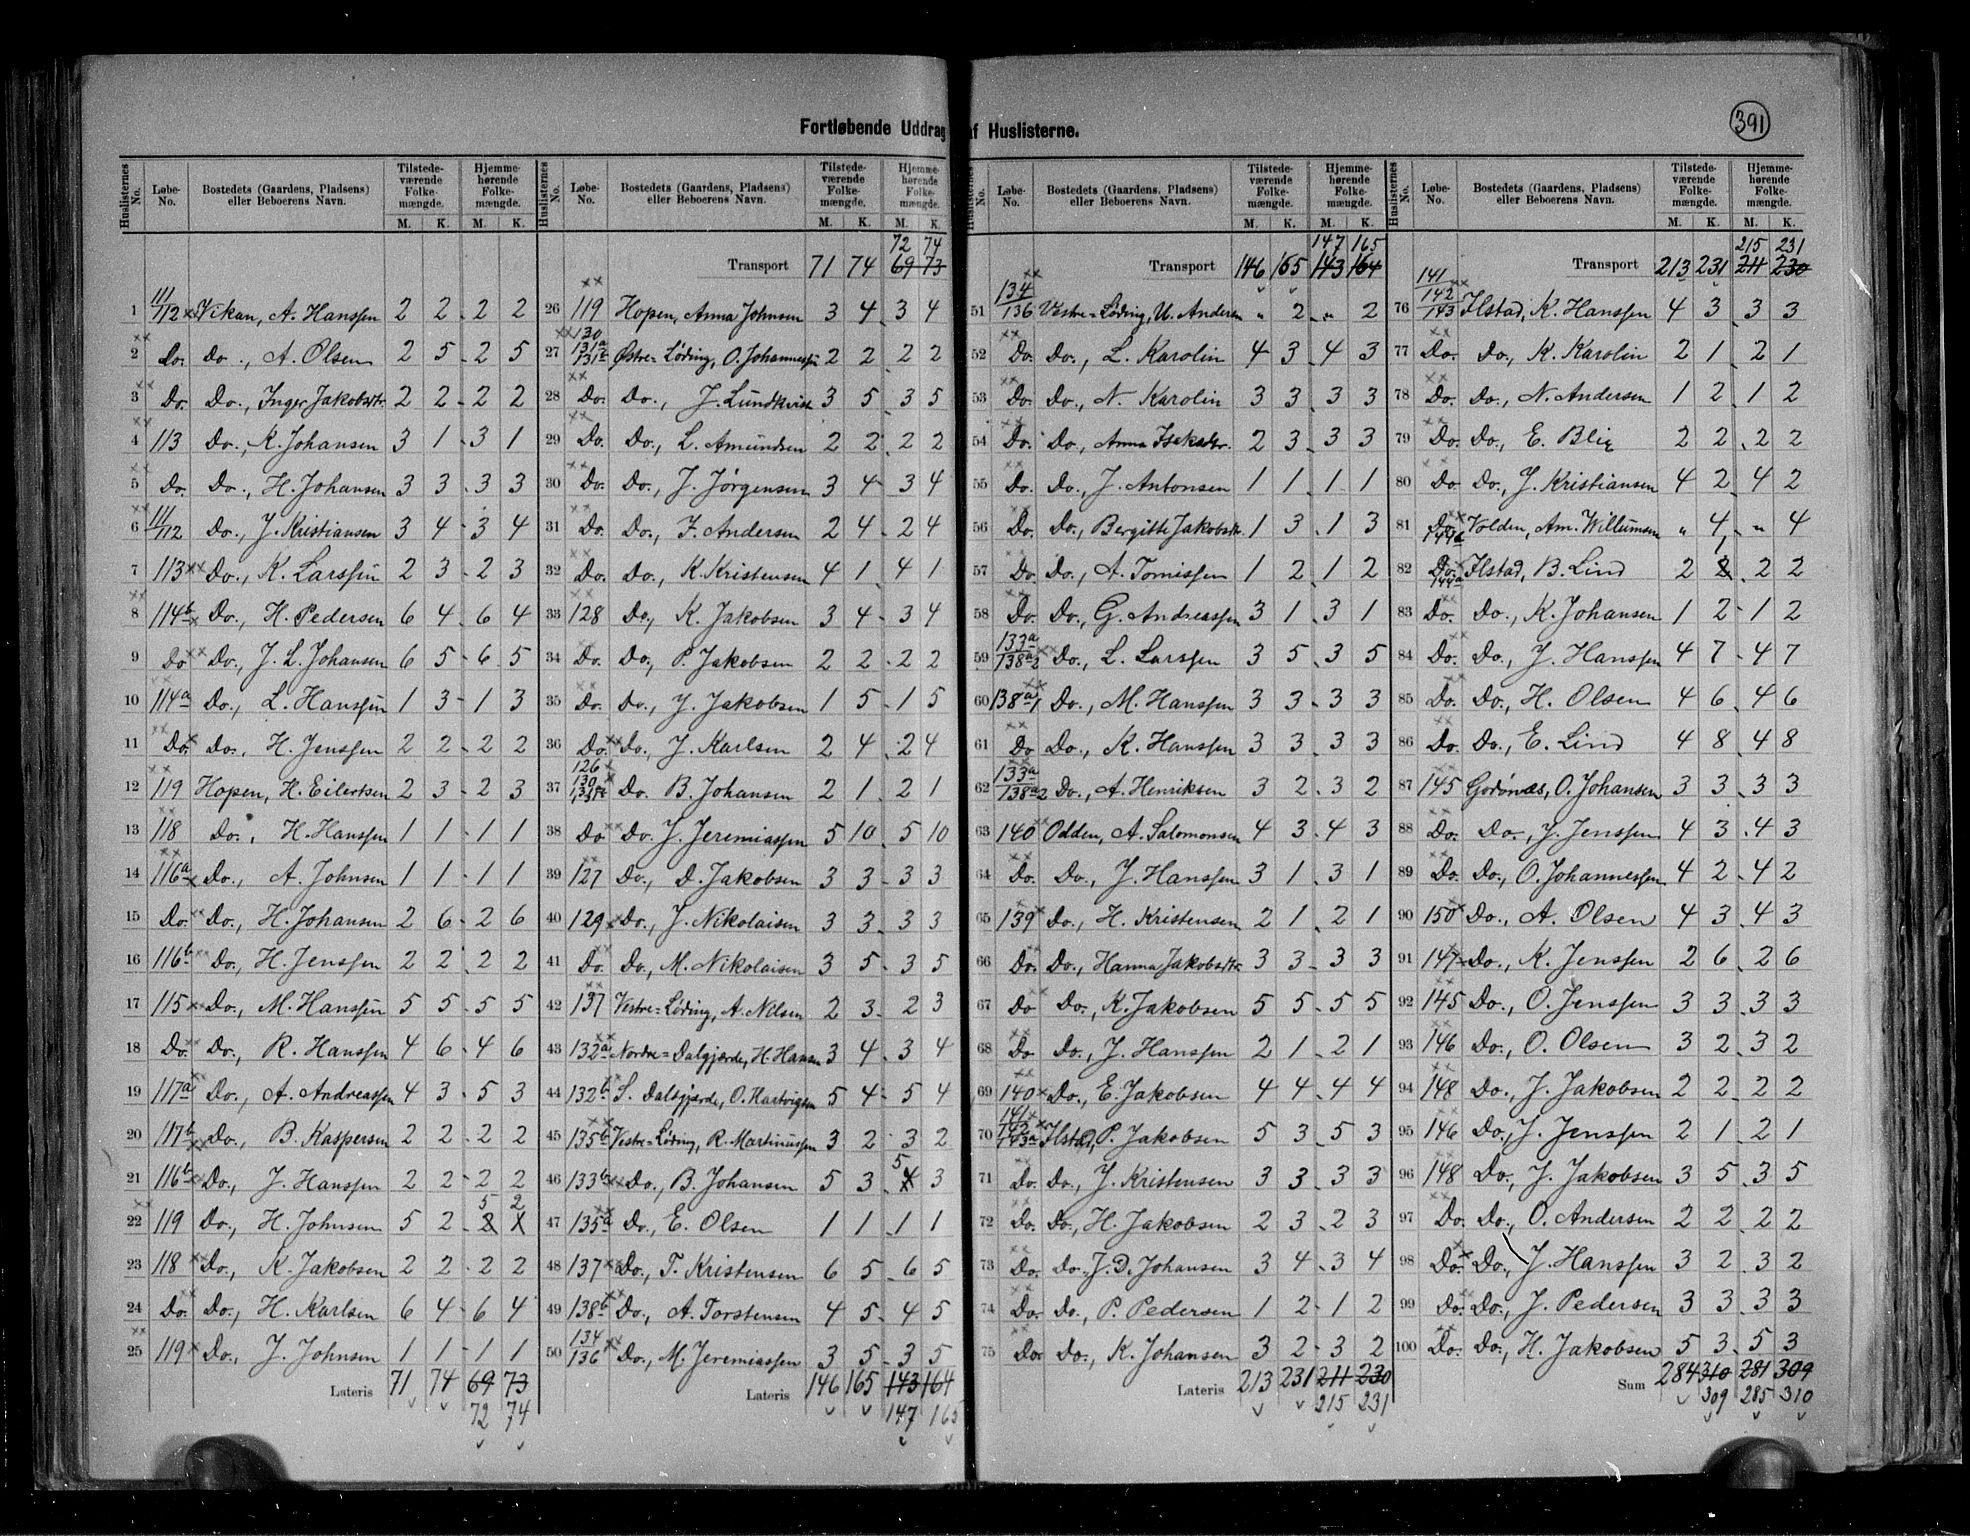 391
Fortløbende Uddrag af Huslisterne.
Huslisternes No. Løbe-No. Bostedets (Gaardens, Pladsens) eller Beboerens Navn. Tilstedeværende Folkemængde. M. K. Hjemmehørende Folkemængde. M. K.
1 111/112 Vikan, A. Hanssen 2 2 2 2
2 Do. Do., A. Olsen 2 5 2 5
3 Do. Do., Inger Jakobsdtr. 2 2 2 2
4 113 Do., K. Johansen 3 1 3 1
5 Do. Do., H. Johansen 3 3 3 3
6 111/112 Do., J. Kristiansen 3 4 3 4
7 113 Do., K. Larssen 2 3 2 3
8 114b Do., H. Pedersen 6 4 6 4
9 Do Do., J. L. Johansen 6 5 6 5
10 114a Do., L. Hanssen 1 3 1 3
11 Do. Do., H. Jenssen 2 2 2 2
12 119 Hopen, H. Eilertsen 2 3 2 3
13 118 Do., H. Hanssen 1 1 1 1
14 116a Do., A. Johnsen 1 1 1 1
15 Do. Do., H. Johansen 2 6 2 6
16 116b Do., H. Jenssen 2 2 2 2
17 115 Do., M. Hanssen 5 5 5 5
18 Do. Do., R. Hanssen 4 6 4 6
19 117a Do., A. Andreassen 4 3 5 3
20 117b Do., B. Kaspersen 2 2 2 2
21 116b Do., J. Hanssen 2 2 2 2
22 119 Do., H. Johnsen 5 2 5 2
23 118 Do., K. Jakobsen 2 2 2 2
24 Do. Do., H. Karlsen 6 4 6 4
25 119 Do., J. Johnsen 1 1 1 1
Lateris 71 74 69 73
72 74
Huslisternes No. Løbe-No. Bostedets (Gaardens, Pladsens) eller Beboerens Navn. Tilstedeværende Folkemængde. M. K. Hjemmehørende Folkemængde. M. K.
72 74
Transport 71 74 69 73
26 119 Hopen, Anna Johnsen 3 4 3 4
27 130 131a Østre-Løding, O. Johannessen 2 2 2 2
28 Do. Do., J. Lundkvist 3 5 3 5
29 Do. Do., L. Amundsen 2 2 2 2
30 Do. Do., J. Jørgensen 3 4 3 4
31 Do. Do., F. Andersen 2 4 2 4
32 Do. Do., K. Kristensen 4 1 4 1
33 128 Do., K. Jakobsen 3 4 3 4
34 Do. Do., P. Jakobsen 2 2 2 2
35 Do. Do., J. Jakobsen 1 5 1 5
36 Do. Do., J. Karlsen 2 4 2 4
37 126 130 Do. B. Johansen 2 1 2 1
38 Do Do. J. Jeremiassen 5 10 5 10
39 127 Do., D. Jakobsen 3 3 3 3
40 129 Do., J. Nikolaisen 3 3 3 3
41 Do. Do., M. Nikolaisen 3 5 3 5
42 137 Vestre-Løding, A. Nilsen 2 3 2 3
43 132a Nordre-Dalgjærde, H. Hansen 3 4 3 4
44 132b S. Dalsgjærde, O. Hartvigsen 5 4 5 4
45 135b Vestre-Løding, R. Martinussen 3 2 3 2
46 133b Do., B. Johansen 5 3 5 3
47 135a Do., E. Olsen 1 1 1 1
48 137 Do., T. Kristensen 6 5 6 5
49 138b Do., A. Torstensen 4 5 4 5
50 134/136 Do., M. Jeremiassen 3 5 3 5
Lateris 146 165 143 164
147 165
Huslisternes No. Løbe-No. Bostedets (Gaardens, Pladsens) eller Beboerens Navn. Tilstedeværende Folkemængde. M. K. Hjemmehørende Folkemængde. M. K.
147 165
Transport 146 165 143 164
51 134/136 Vestre-Løding, U. Andersen " 2 " 2
52 Do. Do., L. Karolin 4 3 4 3
53 Do. Do., N. Karolin 3 3 3 3
54 Do. Do., Anna Isaksdtr. 2 3 3 3
55 Do. Do., J. Antonsen 1 1 1 1
56 Do. Do., Bergitte Jakobsdtr. 1 3 1 3
57 Do. Do., A. Tomissen 1 2 1 2
58 Do. Do., G. Andreassen 3 1 3 1
59 133a/138a2 Do., L. Larssen 3 5 3 5
60 138a1 Do., M. Hanssen 3 3 3 3
61 Do Do., K. Hanssen 3 3 3 3
62 133a/138a2 Do., A. Henriksen 3 2 3 2
63 140 Odden, A. Salomonsen 4 3 4 3
64 Do. Do., J. Hanssen 3 1 3 1
65 139 Do., H. Kristensen 2 1 2 1
66 Do. Do., Hanna Jakobsdtr. 3 3 3 3
67 Do Do., K. Jakobsen 5 5 5 5
68 Do Do., J. Hanssen 2 1 2 1
69 140 Do., E. Jakobsen 4 4 4 4
70 141 142 143a Ilstad, P. Jakobsen 5 3 5 3
71 Do. Do., J. Kristensen 3 3 3 3
72 Do. Do., H. Jakobsen 2 3 2 3
73 Do. Do., J. D. Johansen 3 4 3 4
74 Do. Do., P. Pedersen 1 2 1 2
75 Do. Do., K. Johansen 3 2 3 2
Lateris 213 231 211 230
215 231
Huslisternes No. Løbe-No. Bostedets (Gaardens, Pladsens) eller Beboerens Navn. Tilstedeværende Folkemængde. M. K. Hjemmehørende Folkemængde. M. K.
215 231
Transport 213 231 211 230
76 141 142 143 Ilstad, K. Hanssen 4 3 3 3
77 Do. Do., K. Karolin 2 1 2 1
78 Do. Do., N. Andersen 1 2 1 2
79 Do. Do., E. Blix 2 2 2 2
80 Do Do., J. Kristiansen 4 2 4 2
81 Do. 144b Volden, Am. Willumsen " 4 " 4
82 Do. 144a Ilstad, B. Lind 2 1 2 2
83 Do. Do., K. Johansen 1 2 1 2
84 Do. Do., J. Hanssen 4 7 4 7
85 Do. Do., H. Olsen 4 6 4 6
86 Do. Do., E. Lind 4 8 4 8
87 145 Godønæs, O. Johansen 3 3 3 3
88 Do. Do., J. Jenssen 4 3 4 3
89 Do. Do., O. Johannessen 4 2 4 2
90 150 Do., A. Olsen 4 3 4 3
91 147 Do., K. Jenssen 2 6 2 6
92 145 Do., O. Jenssen 3 3 3 3
93 146 Do., O. Olsen 3 2 3 2
94 148 Do., J. Jakobsen 2 2 2 2
95 146 Do., J. Jenssen 2 1 2 1
96 148 Do., J. Jakobsen 3 5 3 5
97 Do. Do., O. Andersen 2 2 2 2
98 Do. Do., J. Hanssen 3 2 3 2
99 Do. Do., J. Pedersen 3 3 3 3
100 Do. Do., H. Jakobsen 5 3 5 3
Sum 284 310 281 309
309 285 310